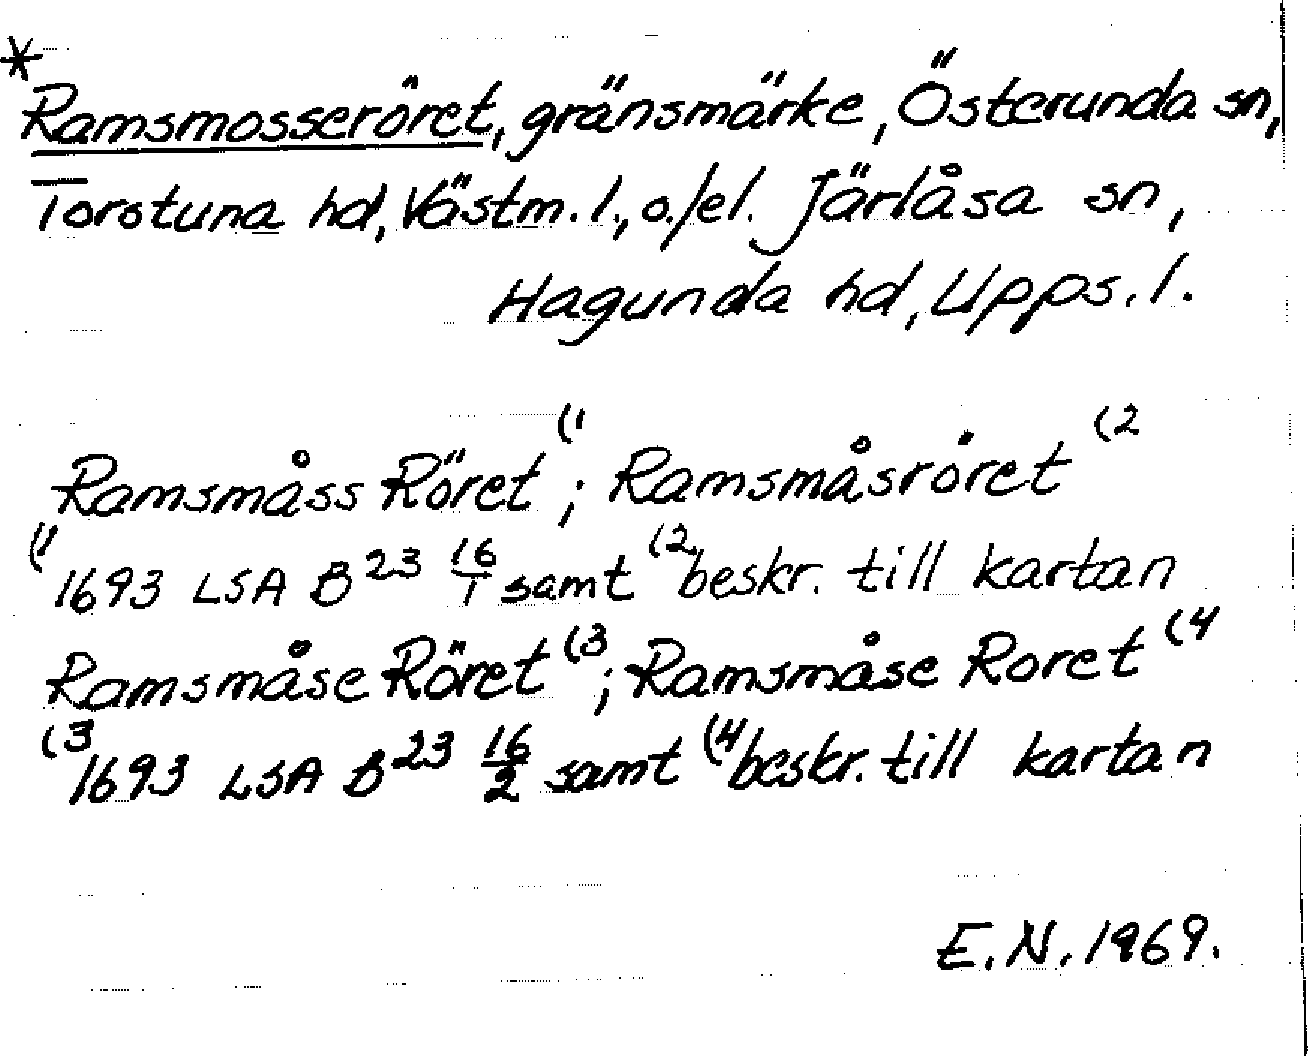 *
Ramsmosseröret, gränsmärke, Österunda sn,
Torstuna hd, Västm. l., o./el. Järlåsa sn,
Hagunda hd, Upps. l.
Ramsmåss Röret (1; Ramsmåsröret (2
(1 1693 LSA B 23 16/1 samt (2 beskr. till kartan
Ramsmåse Röret (3; Ramsmåse Roret (4
(3 1693 LSA B 23 16/2 samt (4 beskr. till kartan
E.N. 1969.